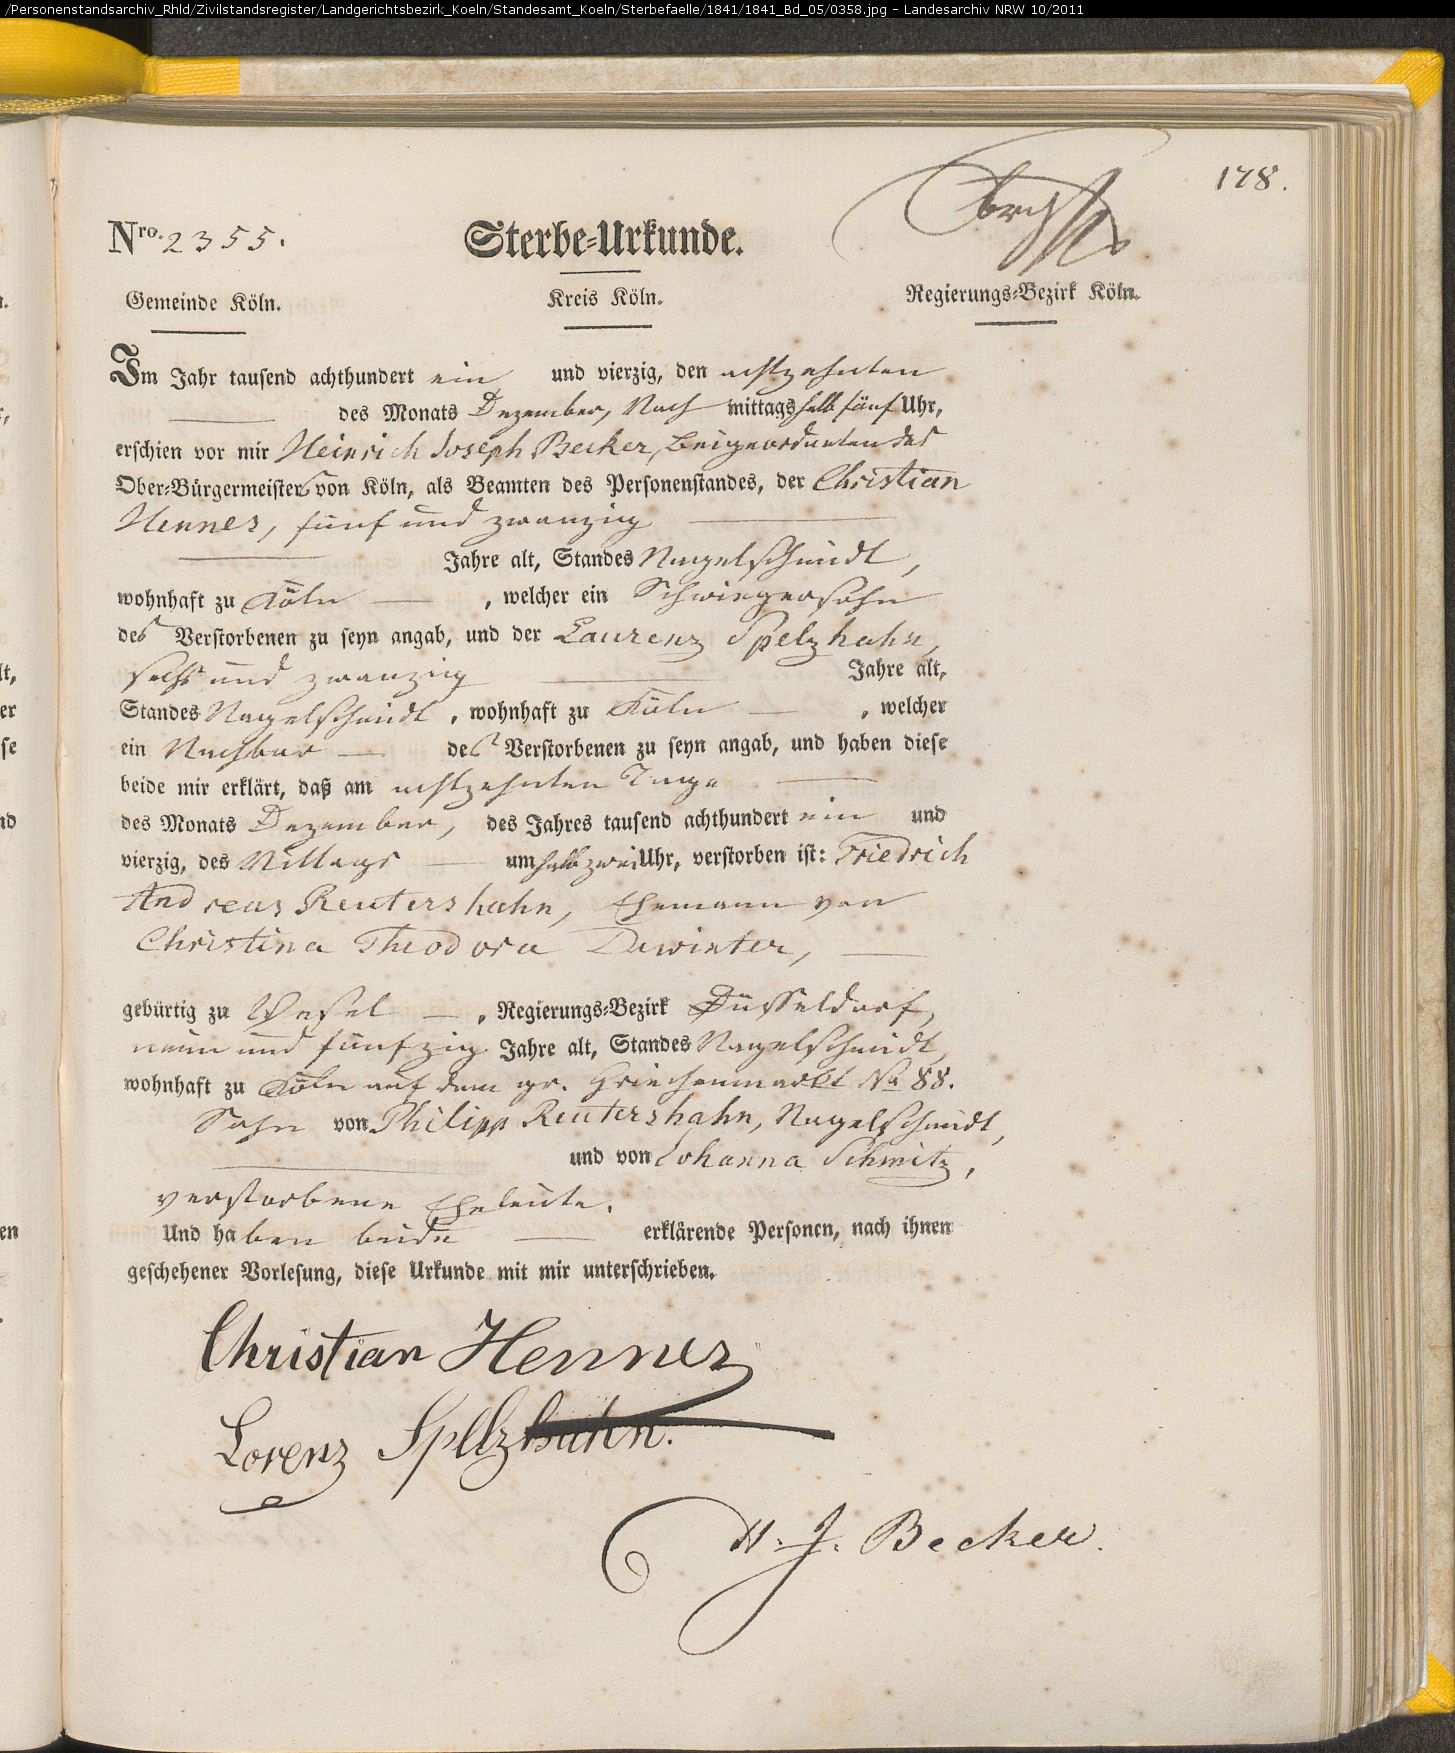 /Personenstandsarchiv_Rhld/Zivilstandsregister/Landgerichtsbezirk_Koeln/Standesamt_Koeln/Sterbefaelle/1841/1841_Bd_05/0358.jpg - Landesarchiv NRW 10/2011
178.
Nro. 2355.
Sterbe-Urkunde.
Gemeinde Köln. Kreis Köln. Regierungs-Bezirk Köln.
Im Jahr tausend achthundert ein und vierzig, den achtzehnten
des Monats Dezember, Nach mittags halb fünf Uhr,
erschien vor mir Heinrich Joseph Becker, Beigeordneten des
Ober-Bürgermeisters von Köln, als Beamten des Personenstandes, der Christian
Hennes, fünf und zwanzig
Jahre alt, Standes Nagelschmidt,
wohnhaft zu Köln , welcher ein Schwiegersohn
des Verstorbenen zu seyn angab, und der Laurenz Spelzhahn,
sechs und zwanzig Jahre alt,
Standes Nagelschmidt, wohnhaft zu Köln , welcher
ein Nachbar des Verstorbenen zu seyn angab, und haben diese
beide mir erklärt, daß am achtzehnten Tage
des Monats Dezember, des Jahres tausend achthundert ein und
vierzig, des Mittags um halb zwei Uhr, verstorben ist: Friedrich
Andreas Reutershahn, Ehemann von
Christina Theodora Dewinter,
gebürtig zu Wesel , Regierungs-Bezirk Düsseldorf,
neun und fünfzig Jahre alt, Standes Nagelschmidt,
wohnhaft zu Köln auf dem gr. Griechenmarkt No 88.
Sohn von Philipp Reutershahn, Nagelschmidt,
und von Johanna Schmitz,
verstorbene Eheleute.
Und haben beide erklärende Personen, nach ihnen
geschehener Vorlesung, diese Urkunde mit mir unterschrieben.
Christian Hennes
Lorenz Spelzhahn.
H. J. Becker.